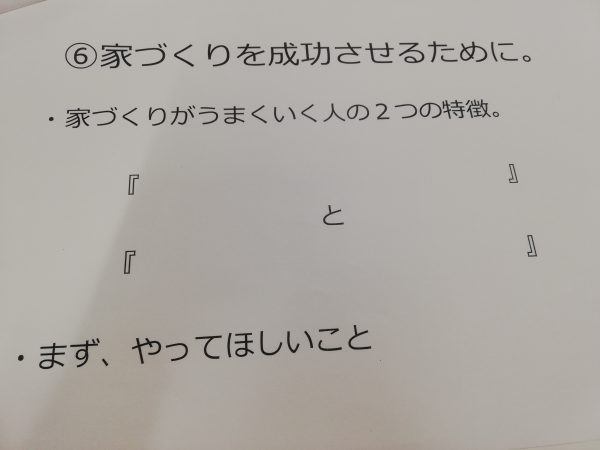 ⑥家づくりを成功させるために。
・家づくりがうまくいく人の２つの特徴。
『　　　　　　　　　　　　　　』
と
『　　　　　　　　　　　　　　』
・まず、やってほしいこと